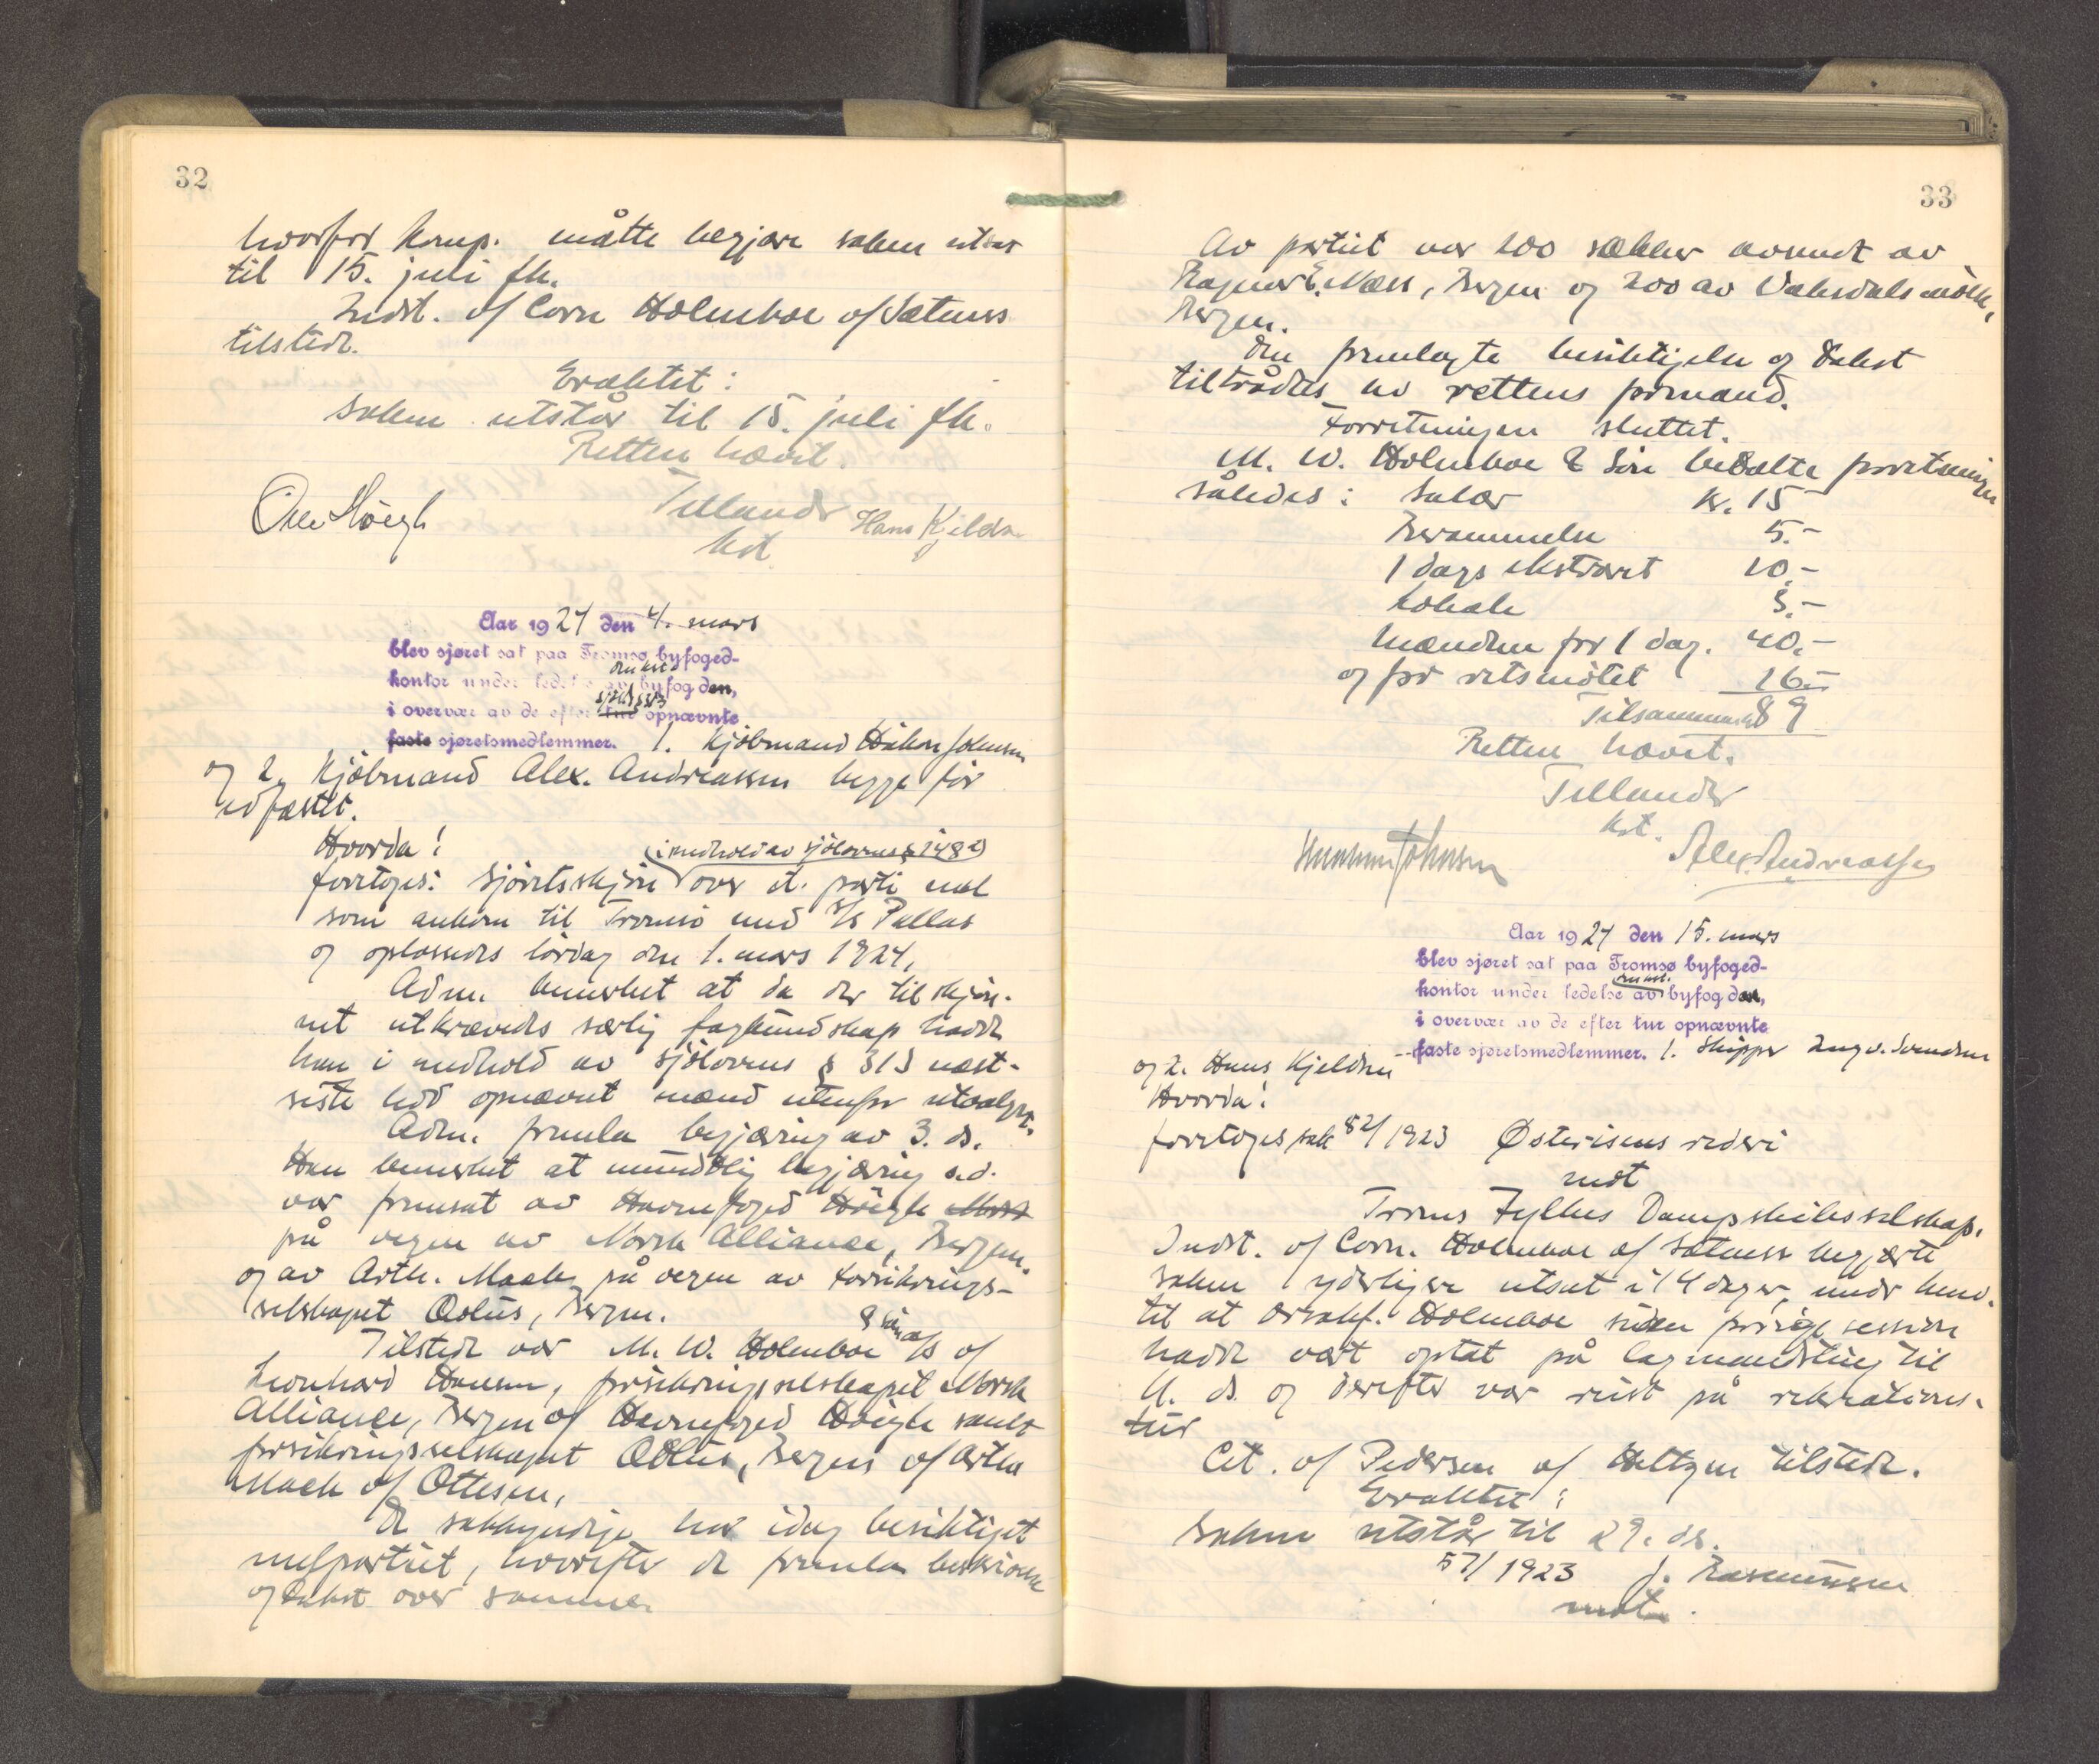 32
hvorfor komp. måtte begjære saken utsat
til 15. juli fk.
Indst. v/ Corn Holmboe v/ Sætness
tilstede.
Eraktet:
Saken utstår til 15. juli fk.
Retten hævet.
Tellander
kst.
Ole Høegh
Hans Kjeldsen
Aar 1924 den 4. mars
blev sjøret sat paa Tromsø byfoged-
kontor under ledelse av den kst. byfogden,
i overvær av de efter sjøl § 313 opnævnte
faste sjøretsmedlemmer. 1. kjøbmand Håkon Johnsen
og 2. kjøbmand Alex. Andreassen begge før
edfæstet.
Hvorda!
(i medhold av sjølovens § 148 2)
foretoges: Sjøretsskjøn over et parti mel
som ankom til Tromsø med S/S Pallas
og oplossedes lørdag den 1. mars 1924.
Adm. bemerket at da der til skjøn-
net utkrævedes særlig fagkundskap hadde
han i medhold av sjølovens § 313 næst-
siste ledd opnævnt mænd utenfor utvalget.
Adm. fremla begjæring av 3. ds.
Han bemerket at mundtlig begjæring s.d.
var fremsat av Havnefoged Høegh
på vegne av Norsk Alliance, Bergen.
og av Arth. Mack på vegne av Forsikrings-
selskapet Æolus, Bergen.
Tilstede var M. W. Holmboe & Søn a/s v/
Leonhard Hansen, forsikringsselskapet Norsk
Alliance, Bergen v/ Havnefoged Høegh samt
forsikringsselskapet Æolus, Bergen v/ Arthur
Mack v/ Ottesen.
De sakkyndige har idag besiktiget
melpartiet, hvorefter de fremla beskrivelse
og takst over samme.
33
Av partiet var 200 sækker avsendt av
Ragnar E. Næss, Bergen og 200 av Vaksdals mølle,
Bergen.
Den fremlagte besiktigelse og takst
tiltrådtes av rettens formand.
Forretningen sluttet.
M. W. Holmboe & Søn betalte forretningen
således: Salær Kr. 15
Berammelse 5.-
1 dags ekstraret 10.-
Lokale 3.-
Mændene for 1 dag. 40.-
og for retsmøtet 16.-
Tilsammen 89
Retten hævet.
Tellander
kst.
Johnsen
Alex. Andreassen
Aar 1924 den 15. mars
blev sjøret sat paa Tromsø byfoged-
kontor under ledelse av den kst. byfogden,
i overvær av de efter tur opnævnte
faste sjøretsmedlemmer. 1. Skipper Ingv. Svendsen
og 2. Hans Kjeldsen
Hvorda!
foretoges sak 82/1923 Østerisens rederi
mot
Troms Fylkes Dampskibsselskap.
Indst. v/ Corn. Holmboe v/ Sætness begjærte
saken yderligere utsat i 14 dager, under henv.
til at o.r.sakf. Holmboe siden forrige session
hadde vært optat på lagmandsting til
11. ds. og derefter var reist på rekreations-
tur
Cit. v/ Pedersen v/ Heltzen tilstede.
Eraktet:
Saken utstår til 29. ds.
57/1923 J. Rasmussen
mot